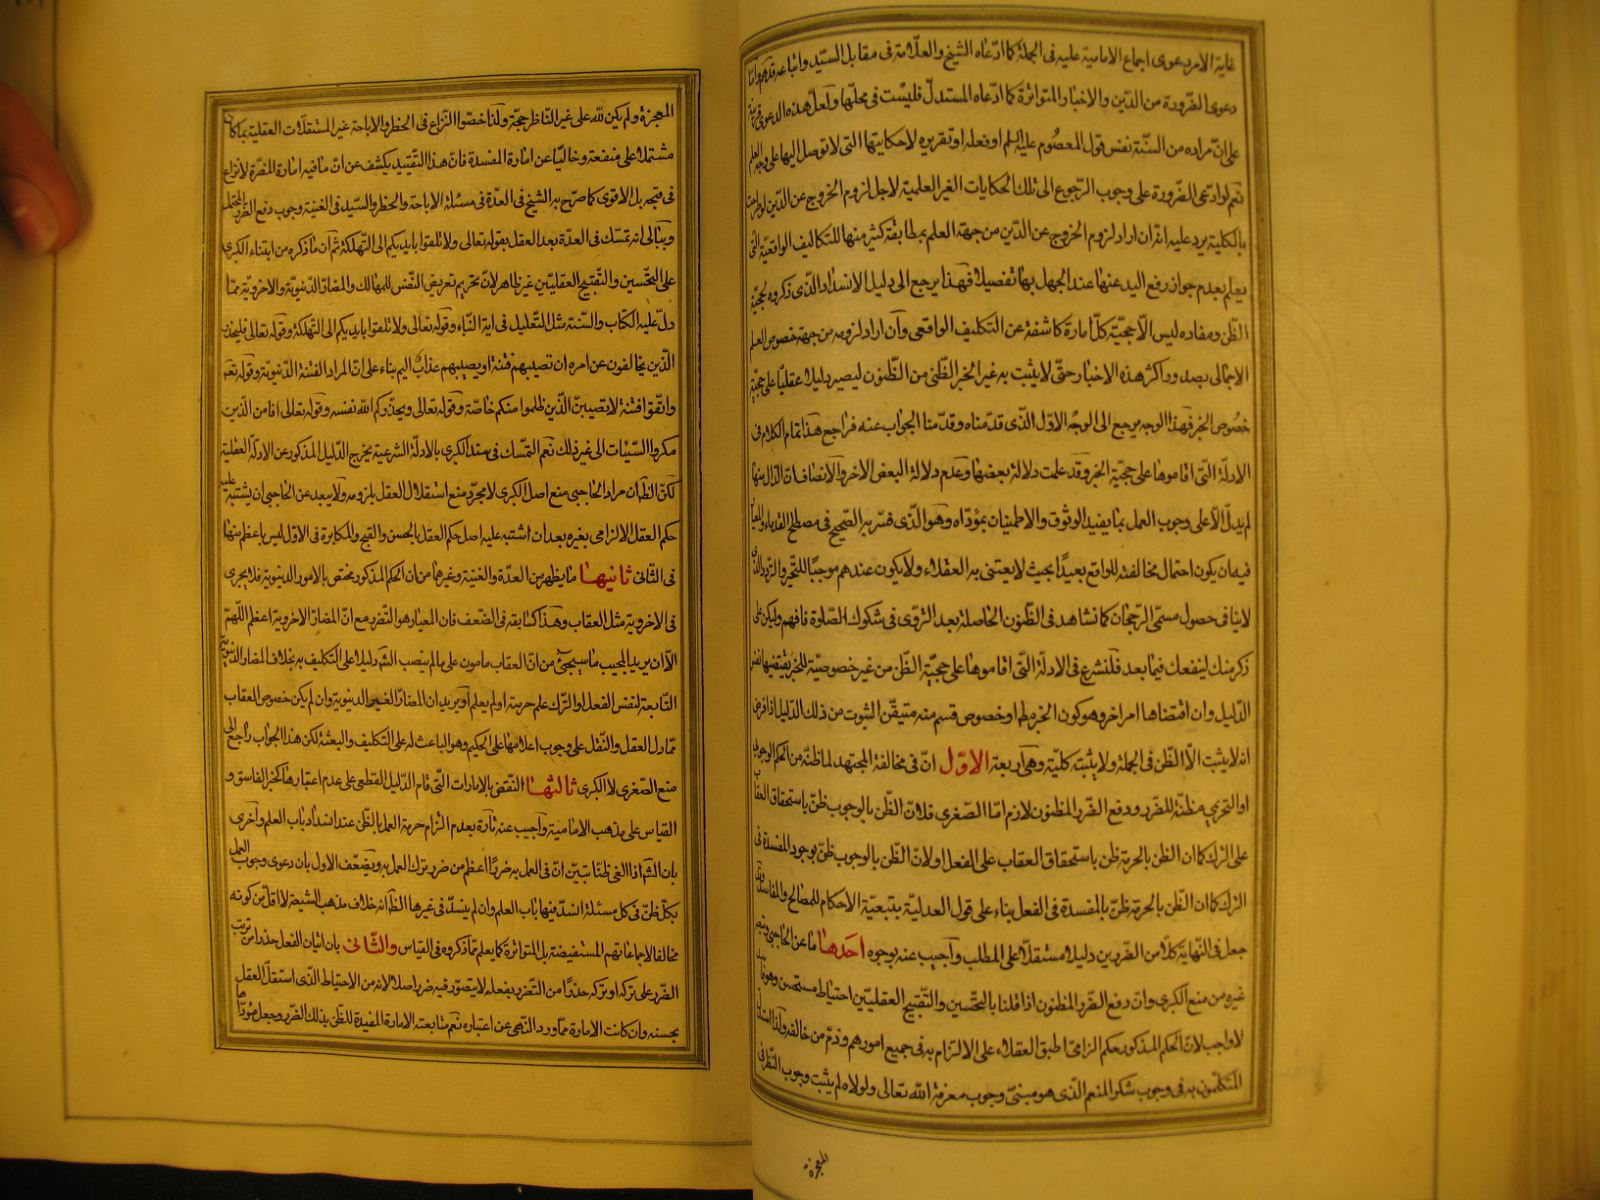 غاية الامر دعوى اجماع الامامية عليه فى الجملة كما ادّعاه الشيخ والعلّامة فى مقابل السيّد واتباعه قدهم وامّا
دعوى الضّرورة من الدّين والاخبار المتواترة كما ادّعاه المستدلّ فليست فى محلّها ولعلّ هذه الدعوى قرينة
على انّ مراده من السنّة نفس قول المعصوم عليه السلم او فعله او تقريره لا حكايتها التى لا توصل اليها على وجه العلم
نعم لو ادعى الضّرورة على وجوب الرّجوع الى تلك الحكايات الغير العلمية لاجل لزوم الخروج عن الدّين لو طرحت
بالكلية يرد عليه انّه ان اراد لزوم الخروج عن الدّين من جهة العلم بمطابقة كثير منها للتكاليف الواقعيّة التى
يعلم بعدم جواز رفع اليد عنها عند الجهل بها تفصيلا فهذا يرجع الى دليل الانسداد الّذى ذكروه لحجيّة
الظّن ومفاده ليس الّا حجيّة كلّ امارة كاشفة عن التكليف الواقعى وان اراد لزومه من جهة خصوص العلم
الاجمالى بصدور اكثر هذه الاخبار حتّى لا يثبت به غير الخبر الظّنى من الظّنون ليصير دليلا عقليّا على حجيّة
خصوص الخبر فهذا الوجه يرجع الى الوجه الاوّل الّذى قدّمناه وقدّمنا الجواب عنه فراجع هذا تمام الكلام فى
الادلّة الّتى اقاموها على حجيّة الخبر وقد علمت دلالة بعضها وعدم دلالة البعض الاخر والانصاف انّ الدّال منها
لم يدلّ الّا على وجوب العمل بما يفيد الوثوق والاطمينان بمؤدّاه وهو الّذى فسّر به الصّحيح فى مصطلح القدماء والمعيار
فيه ان يكون احتمال مخالفته للواقع بعيدًا بحيث لا يعتنى به العقلاء ولا يكون عندهم موجبًا للتّحيّر والتردد الّذى
لا ينافى حصول مسمّى الرّجحان كما نشاهد فى الظّنون الحاصلة بعد التّروّى فى شكوك الصّلوة فافهم وليكن على
ذكر منك لينفعك فيما بعد فلنشرع فى الادلّة الّتى اقاموها على حجيّة الظّن من غير خصوصيّة للخبر يقتضيها نفس
الدّليل وان اقتضاها امر اخر وهو كون الخبر مطم او خصوص قسم منه متيقّن الثبوت من ذلك الدّليل اذا فرض
انه لا يثبت الّا الظّن فى الجملة ولا يثبته كليّة وهى اربعة الاوّل انّ فى مخالفة المجتهد لما ظنّه من الحكم الوجوبى
او التحريمى مظنّة للضّرر ودفع الضّرر المظنون لازم امّا الصّغرى فلانّ الظّن بالوجوب ظنّ باستحقاق العقاب
على الترك كما ان الظّن بالحرمة ظن باستحقاق العقاب على الفعل او لانّ الظّن بالوجوب ظنّ بوجود المفسدة فى
الترك كما ان الظّن بالحرمة ظنّ بالمفسدة فى الفعل بناء على قول العدليّة بتبعيّة الاحكام للمصالح والمفاسد وقد
جعل فى النّهاية كلّا من الضّررين دليلا مستقلّا على المطلب واجيب عنه بوجوه احدها ما عن الحاجبى وتبعه
غيره من منع الكبرى وانّ دفع الضّرر المظنون اذا قلنا بالتّحسين والتّقبيح العقليّين احتياط مستحسن وهو فاسد
لا واجب لانّ الحكم المذكور حكم الزامى اطبق العقلاء على الالتزام به فى جميع امورهم وذمّ من خالفه ولذا استدلّ
المتكلّمون به فى وجوب شكر المنعم الّذى هو مبنىّ وجوب معرفة اللّه تعالى ولولاه لم يثبت وجوب النّظر فى
المعجزة
المعجزة ولم يكن للّه على غير النّاظر حجّة ولذا خصّوا النّزاع فى الحظر والاباحة غير المستقلّات العقلية بما كان
مشتملا على منفعة وخاليًا عن امارة المفسدة فانّ هذا التّقييد يكشف عن انّ ما فيه امارة المضّرة لا نزاع
فى قبحه بل الاقوى كما صرّح به الشيخ فى العدّة فى مسئلة الاباحة والحظر والسّيّد فى الغنية وجوب دفع الضّرر المحتمل
وببالى انه تمسّك فى العدّة بعد العقل بقوله تعالى ولا تلقوا بايديكم الى التّهلكة ثم ان ما ذكره من ابتناء الكبرى
على التّحسين والتّقبيح العقليّين غير ظاهر لانّ تحريم تعريض النّفس للمهالك والمضارّ الدّنيويّة والاخرويّة ممّا
دلّ عليه الكتاب والسّنة مثل التّعليل فى اية النّباء وقوله تعالى ولا تلقوا بايديكم الى التّهلكة وقوله تعالى فليحذر
الّذين يخالفون عن امره ان تصيبهم فتنة او يصيبهم عذاب اليم بناء على انّ المراد الفتنة الدّنيويّة وقوله تعه
واتّقوا فتنة لا تصيبنّ الّذين ظلموا منكم خاصّة وقوله تعالى ويحذّركم اللّه نفسه وقوله تعالى افامن الّذين
مكروا السّيّئات الى غير ذلك نعم التمسّك فى سند الكبرى بالادلّة الشّرعية يخرج الدّليل المذكور عن الادلّة العقلية
لكنّ الظّ ان مراد الحاجبى منع اصل الكبرى لا مجرّد منع استقلال العقل بلزومه ولا يبعد عن الحاجبى ان يشتبه عليه
حكم العقل الالزامى بغيره بعد ان اشتبه عليه اصل حكم العقل بالحسن والقبح والمكابرة فى الاوّل ليس باعظم منها
فى الثّانى ثانيها ما يظهر من العدة والغنية وغيرهما من ان الحكم المذكور مختص بالامور الدنيوية فلا يجرى
فى الاخروية مثل العقاب وهذا كسابقه فى الضّعف فان المعيار هو التّضرر مع انّ المضارّ الاخروية اعظم اللّهمّ
الّا ان يريد المجيب ما سيجئ من انّ العقاب مامون على ما لم ينصب الشّه دليلا على التكليف به بخلاف المضار الدنيوية
التّابعة لنفس الفعل او التّرك علم حرمته او لم يعلم او يريد ان المضارّ الغير الدنيوية وان لم يكن خصوص العقاب
ممّا دل العقل والنّقل على وجوب اعلامها على الحكيم وهو الباعث له على التّكليف والبعثة لكن هذا الجواب راجع الى
منع الصّغرى لا الكبرى ثالثها النّقض بالامارات الّتى قام الدّليل القطعى على عدم اعتبارها كخبر الفاسق و
القياس على مذهب الامامية واجيب عنه تارة بعدم التزام حرمة العمل بالظّن عند انسداد باب العلم واخرى
بان الشّه اذا الغى ظنّا تبيّن انّ فى العمل به ضررًا اعظم من ضرر ترك العمل به ويضعّف الاول بان دعوى وجوب العمل
بكلّ ظنّ فى كل مسئلة انسدّ فيها باب العلم وان لم ينسدّ فى غيرها الظّ انه خلاف مذهب الشيعة لا اقلّ من كونه
مخالفا لاجماعاتهم المستفيضة بل المتواترة كما يعلم ممّا ذكروه فى القياس والثّانى بان اتيان الفعل حذرا من ترتب
الضّرر على تركه او تركه حذرًا من التّضرر بفعله لا يتصوّر فيه ضرر اصلا لانه من الاحتياط الّذى استقلّ العقل
بحسنه وان كانت الامارة ممّا ورد النّهى عن اعتباره نعم متابعة الامارة المفيدة للظّن بذلك الضّرر وجعل مؤدّاها